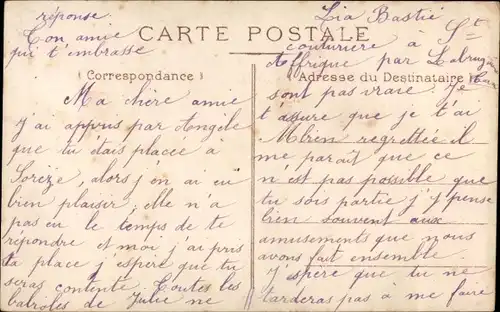 CARTE POSTALE
Correspondance
Adresse du Destinataire
Ma chère amie
j'ai appris par Angèle
que tu étais placée a
Sorèze, alors j'en ai eu
bien plaisir, elle n'a
pas eu le temps de te
répondre et moi j'ai pris
ta place j'espère que tu
seras contente. Toutes les
babioles de Julie ne
sont pas vraie. Je
t'assure que je t'ai
bien regrettée il
me parait que ce
n'est pas possible que
tu sois partie j'y pense
bien souvent aux
amusements que nous
avons fait ensemble.
J'espère que tu ne
tarderas pas à me faire
réponse.
Ton amie
qui t'embrasse
Lia Bastié
couturière à St
Affrique par